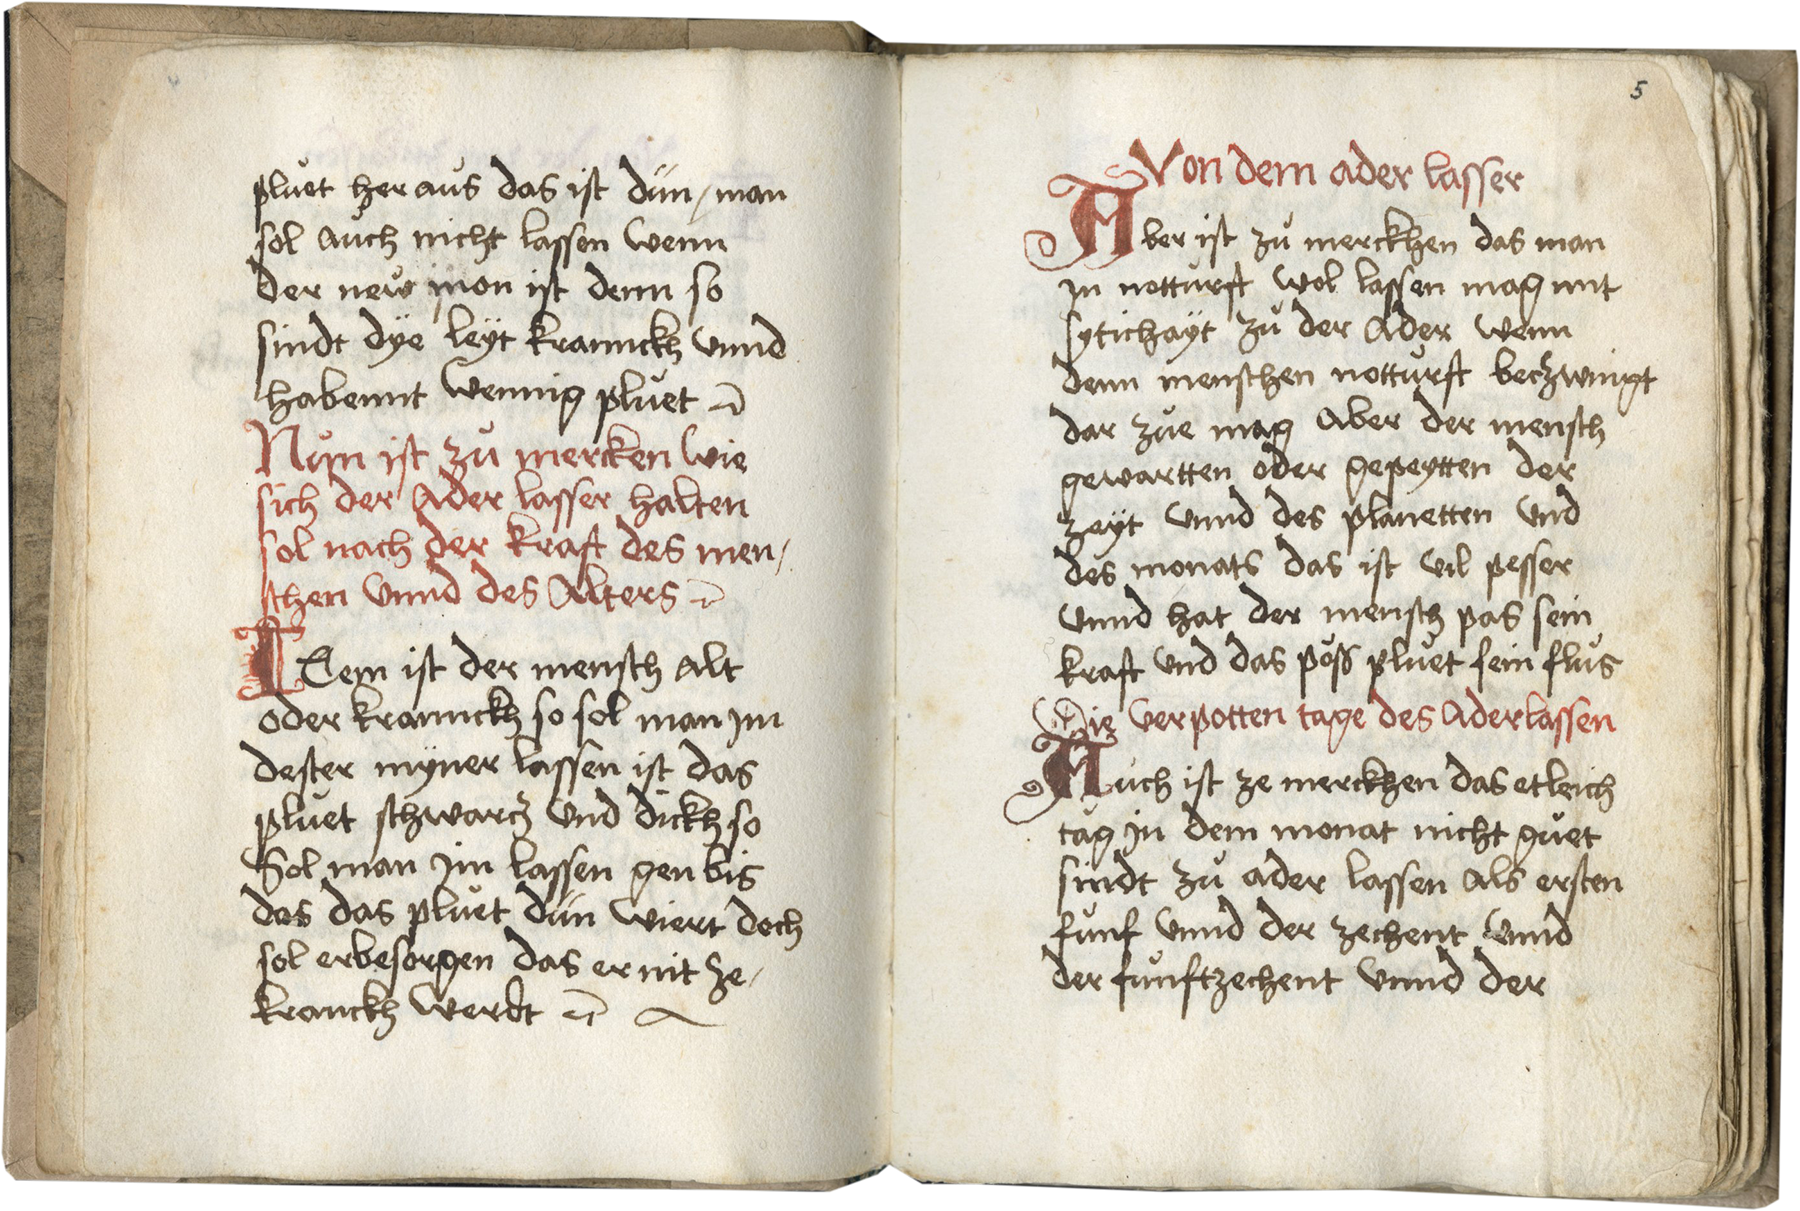 pluet her aus das ist dün / man
sol auch nicht lassen wenn
der new mon ist denn so
sindt dÿe leÿt krannckh vnnd
habennt wennig pluet
Nun ist zu mercken wie
sich der Ader lasser halten
sol nach der kraft des men /
schen vnnd des Alters
ITem ist der mensch alt
oder krannckh so sol man im
dester mÿner lassen ist das
pluet schwarcz vnd dickh so
Sol man im lassen gen bis
das das pluet dün wiert doch
sol er besorgen das er nit ze /
kranckh werdt
5
Von dem ader lasser
Aber ist zu merckhen das man
in notturft wol lassen mag mit
sÿtichaÿt zu der Ader wenn
denn menschen notturft beczwingt
dar zue mag Aber der mensch
gewartten oder gepeytten der
zeÿt vnnd des planetten vnd
des monats das ist vil pesser
vnnd hat der mensch pas sein
kraft vnd das pöss pluet sein flus
Die verpotten tage des Aderlassen
Auch ist ze merckhen das etleich
tag in dem monat nicht guet
sindt zu ader lassen Als ersten
funf vnnd der zechent vnnd
der funftzechent vnnd der